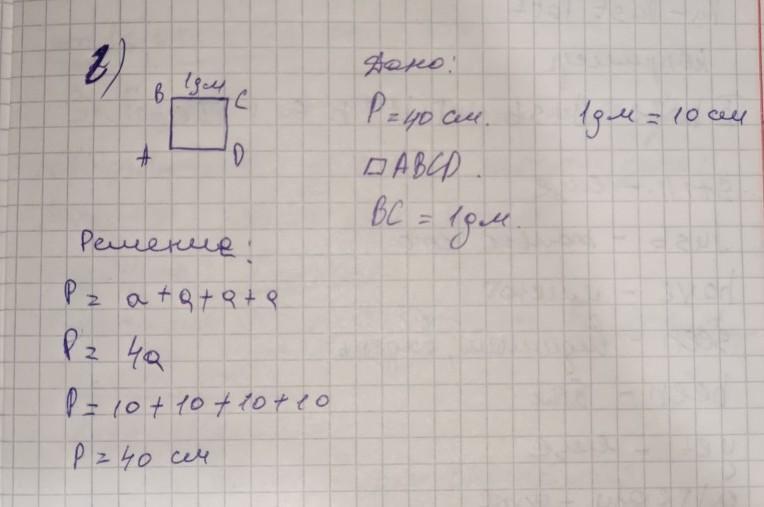 в)
B 1дм C
A D
Дано:
P = 40 см. 1дм = 10 см
□ABCD.
BC = 1дм.
Решение:
P = a + a + a + a
P = 4a
P = 10 + 10 + 10 + 10
P = 40 см